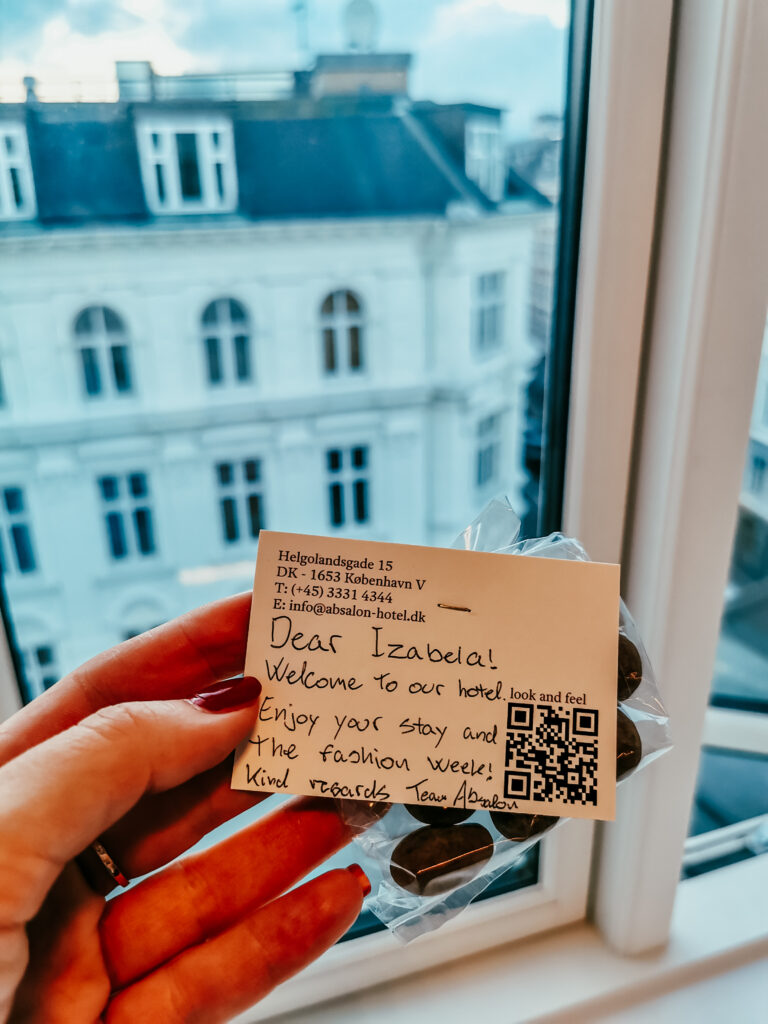 Helgolandsgade 15
DK - 1653 København V
T: (+45) 3331 4344
E: info@absalon-hotel.dk
Dear Izabela!
Welcome to our hotel.
look and feel
Enjoy your stay and
the fashion week!
Kind regards Team Absalon